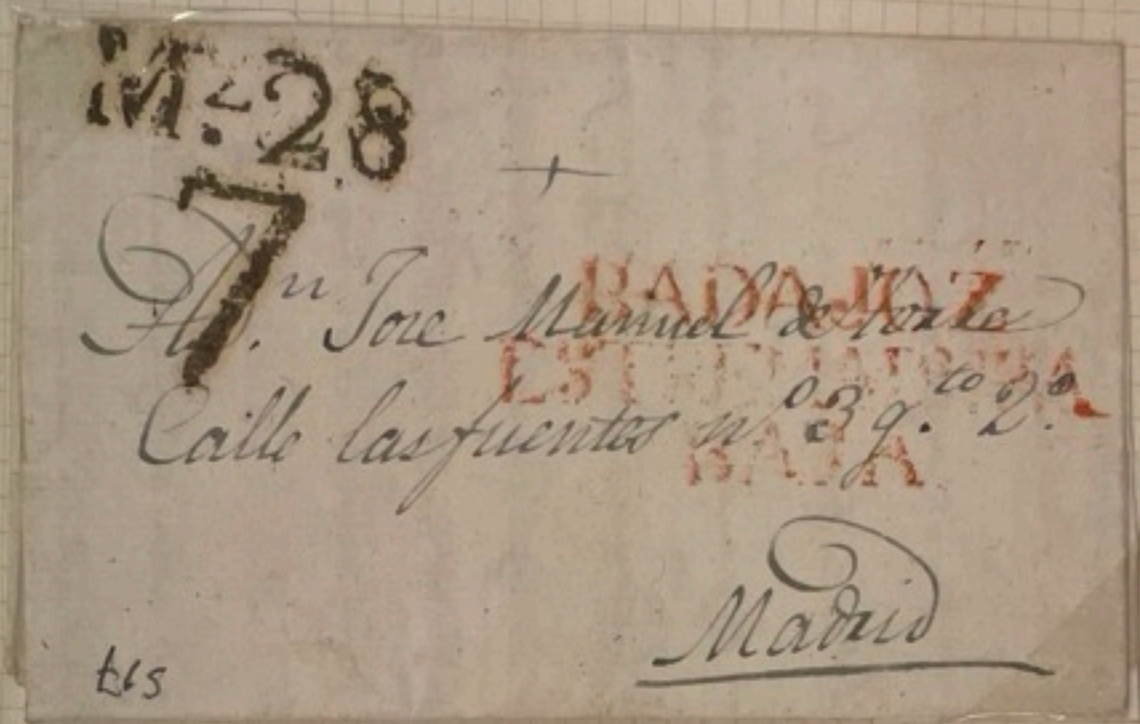 Mº 28
7
BADAJOZ
ESTREMADURA
BAJA
Jose Manuel de
Calle las fuentes nº 3 q.to 2.º
Madrid